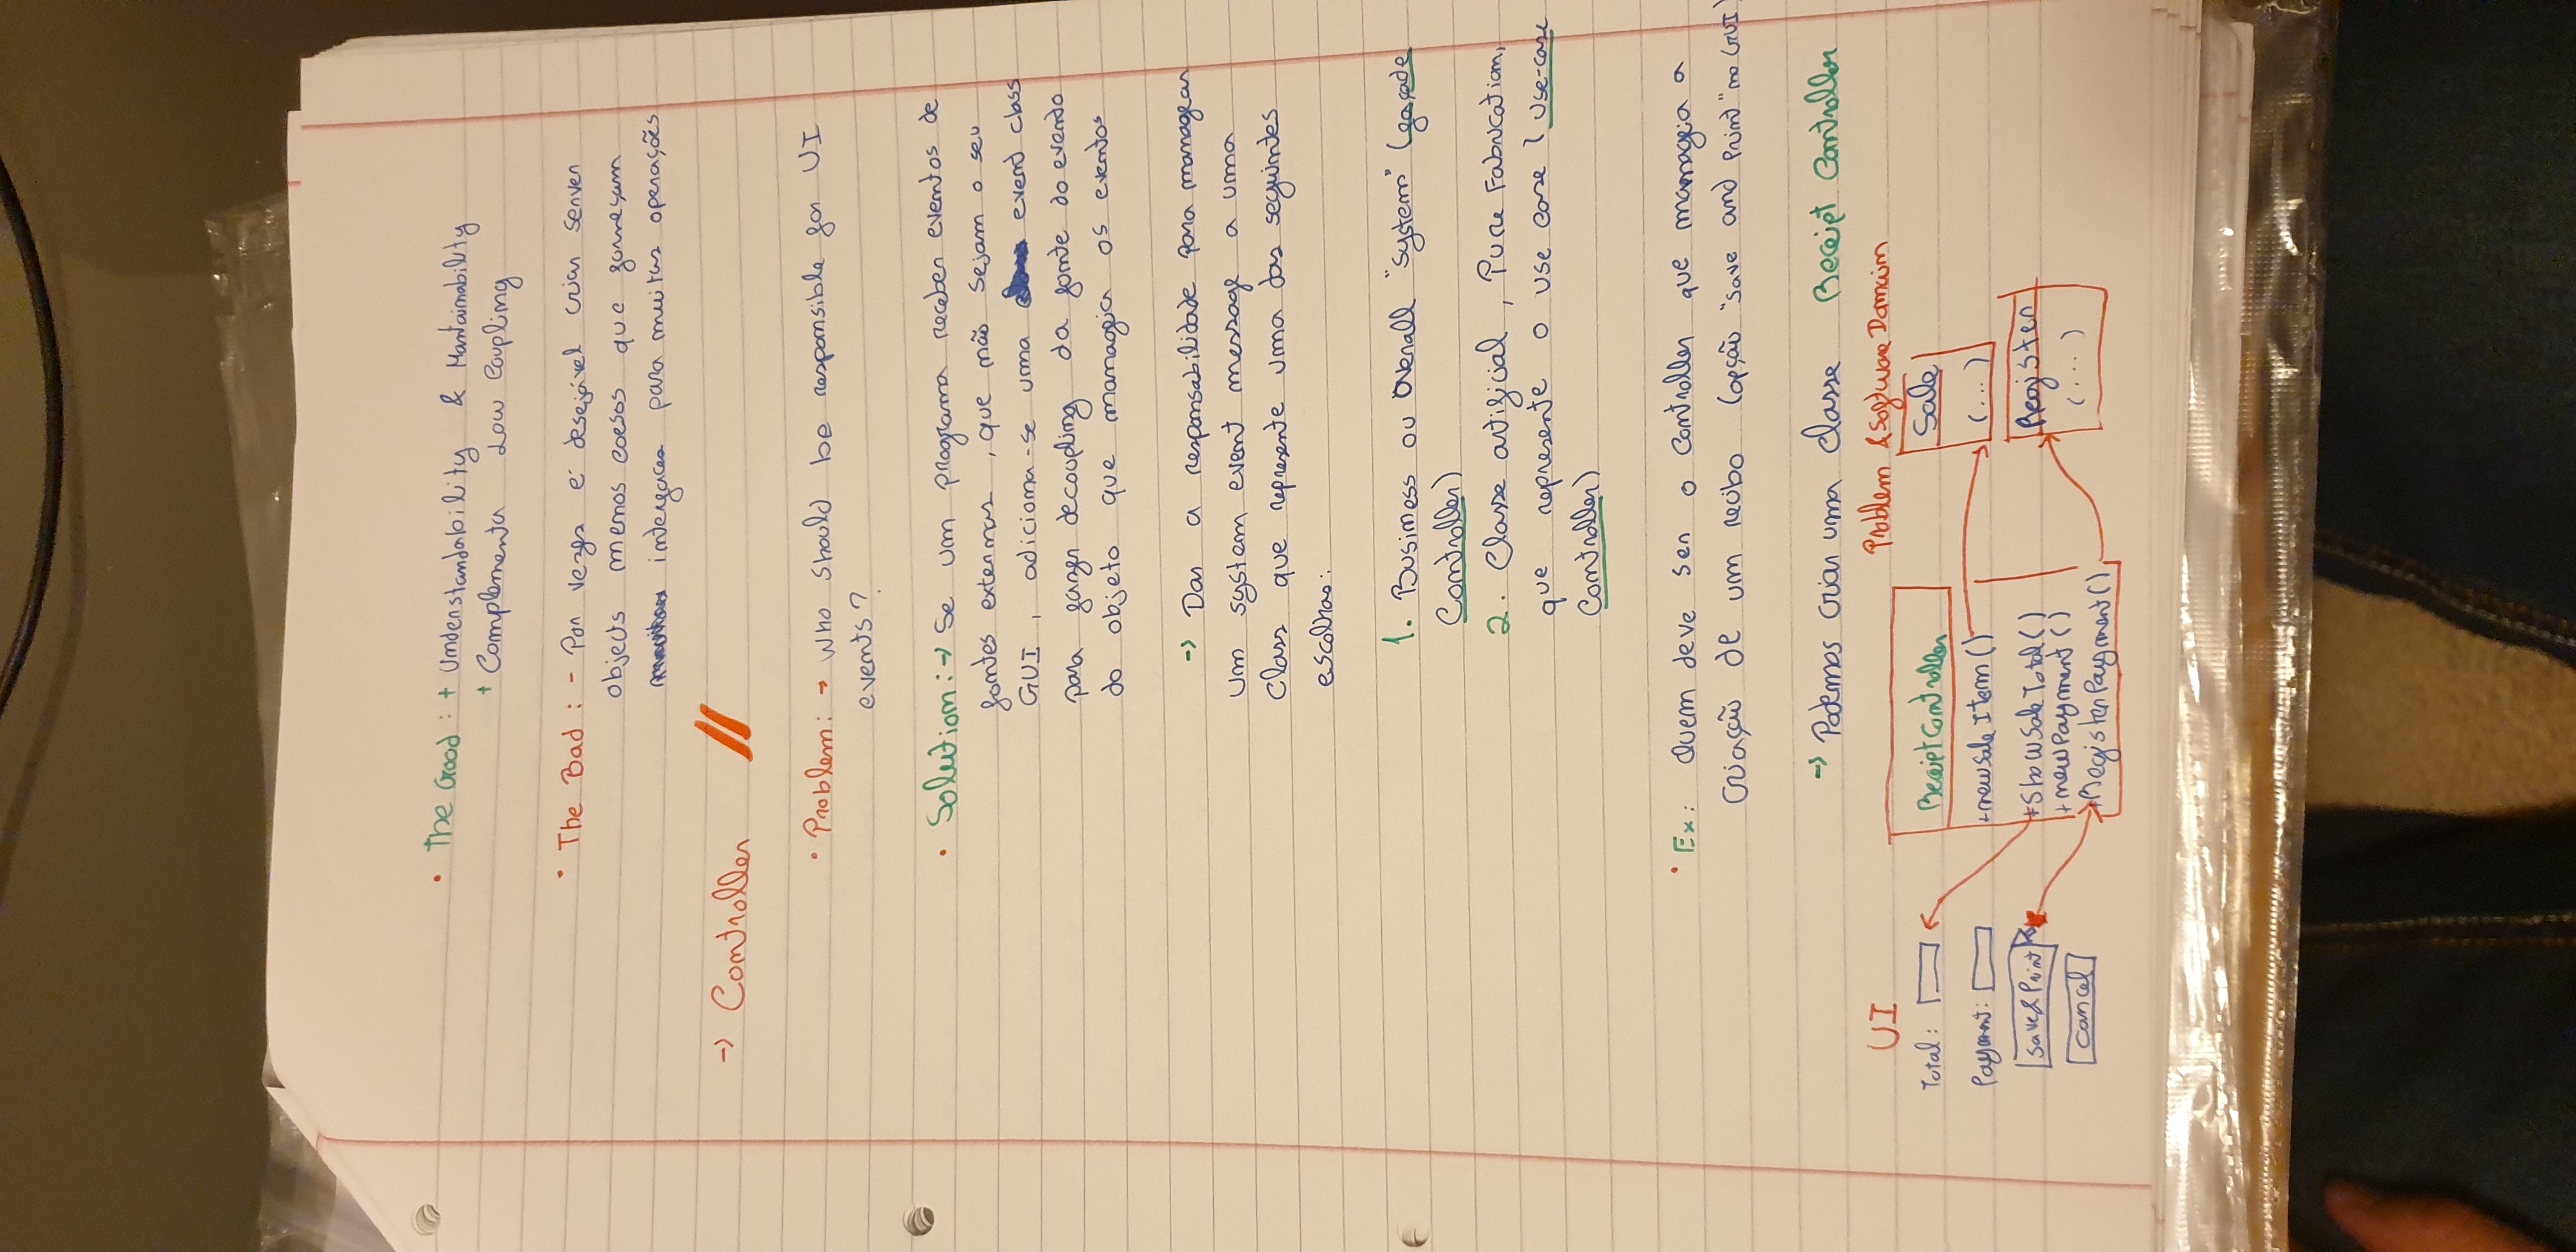 • The Good: + Understandability & Mantainability
+ Complementa Low Coupling
• The Bad: - Por vezes é desejável criar server
objects menos coesos que forneçam
interfaces para muitas operações
→ Controller
• Problem: → Who should be responsible for UI
events?
• Solution: → Se um programa receber eventos de
fontes externas, que não sejam o seu
GUI, adiciona-se uma event class
para fazer decoupling da fonte do evento
do objeto que manageia os eventos
→ Dar a responsabilidade para managear
um system event message a uma
Class que represente uma das seguintes
escolhas:
1. Business ou Overall "system" (façade
Controller)
2. Classe artificial, Pure Fabrication,
que represente o use case (use-case
Controller)
• Ex: Quem deve ser o Controller que manageia a
criação de um recibo (opção "save and print" no GUI)
→ Podemos criar uma classe Receipt Controller
UI
Problem & Software Domain
Total:
Receipt Controller
Sale
Payment:
+newSaleItem()
(...)
Save&Print
+ShowSaleTotal()
Register
+newPayment()
Cancel
+RegisterPaygment()
(...)